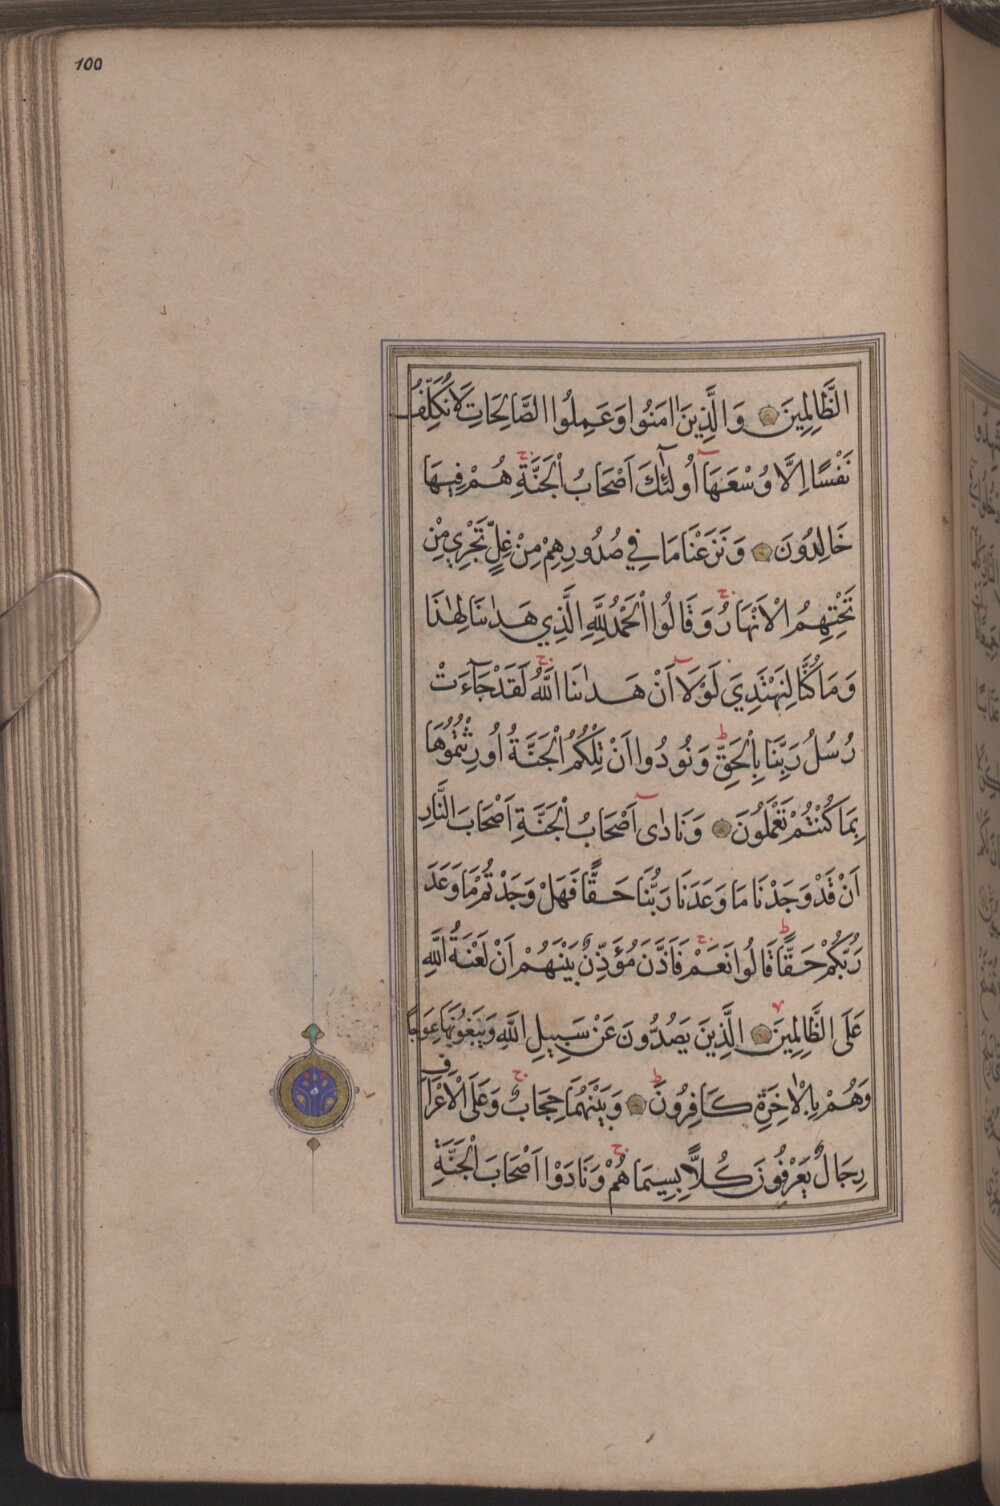 100
الظَّالِمِينَ وَالَّذِينَ اٰمَنُوا وَعَمِلُوا الصَّالِحَاتِ لَا نُكَلِّفُ
نَفْسًا اِلَّا وُسْعَهَآ اُولٰٓئِكَ اَصْحَابُ الْجَنَّةِ هُمْ فِيهَا
خَالِدُونَ وَنَزَعْنَا مَا فِي صُدُورِهِمْ مِنْ غِلٍّ تَجْرِي مِنْ
تَحْتِهِمُ الْاَنْهَارُ وَقَالُوا الْحَمْدُ لِلّٰهِ الَّذِي هَدٰينَا لِهٰذَا
وَمَا كُنَّا لِنَهْتَدِيَ لَوْلَآ اَنْ هَدٰينَا اللّٰهُ لَقَدْ جَآءَتْ
رُسُلُ رَبِّنَا بِالْحَقِّ وَنُودُوا اَنْ تِلْكُمُ الْجَنَّةُ اُورِثْتُمُوهَا
بِمَا كُنْتُمْ تَعْمَلُونَ وَنَادٰٓى اَصْحَابُ الْجَنَّةِ اَصْحَابَ النَّارِ
اَنْ قَدْ وَجَدْنَا مَا وَعَدَنَا رَبُّنَا حَقًّا فَهَلْ وَجَدْتُمْ مَا وَعَدَ
رَبُّكُمْ حَقًّا قَالُوا نَعَمْ فَاَذَّنَ مُؤَذِّنٌ بَيْنَهُمْ اَنْ لَعْنَةُ اللّٰهِ
عَلَى الظَّالِمِينَ الَّذِينَ يَصُدُّونَ عَنْ سَبِيلِ اللّٰهِ وَيَبْغُونَهَا عِوَجًا
وَهُمْ بِالْاٰخِرَةِ كَافِرُونَ وَبَيْنَهُمَا حِجَابٌ وَعَلَى الْاَعْرَافِ
رِجَالٌ يَعْرِفُونَ كُلًّا بِسِيمَاهُمْ وَنَادَوْا اَصْحَابَ الْجَنَّةِ